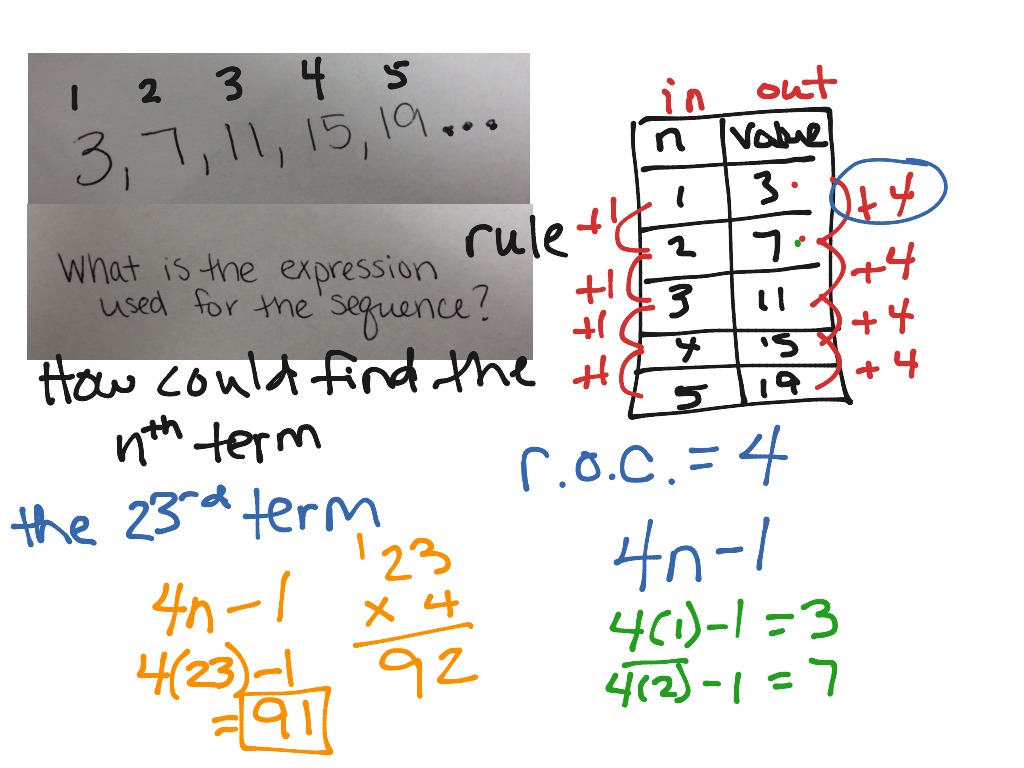 1 2 3 4 5
3, 7, 11, 15, 19 ...
What is the expression
used for the sequence?
rule
How could find the
nth term
the 23rd term
4n - 1
4(23) - 1
= 91
1
23
x 4
92
in out
n value
1 3
2 7
3 11
4 15
5 19
+1
+1
+1
+1
+4
+4
+4
+4
r.o.c. = 4
4n - 1
4(1) - 1 = 3
4(2) - 1 = 7